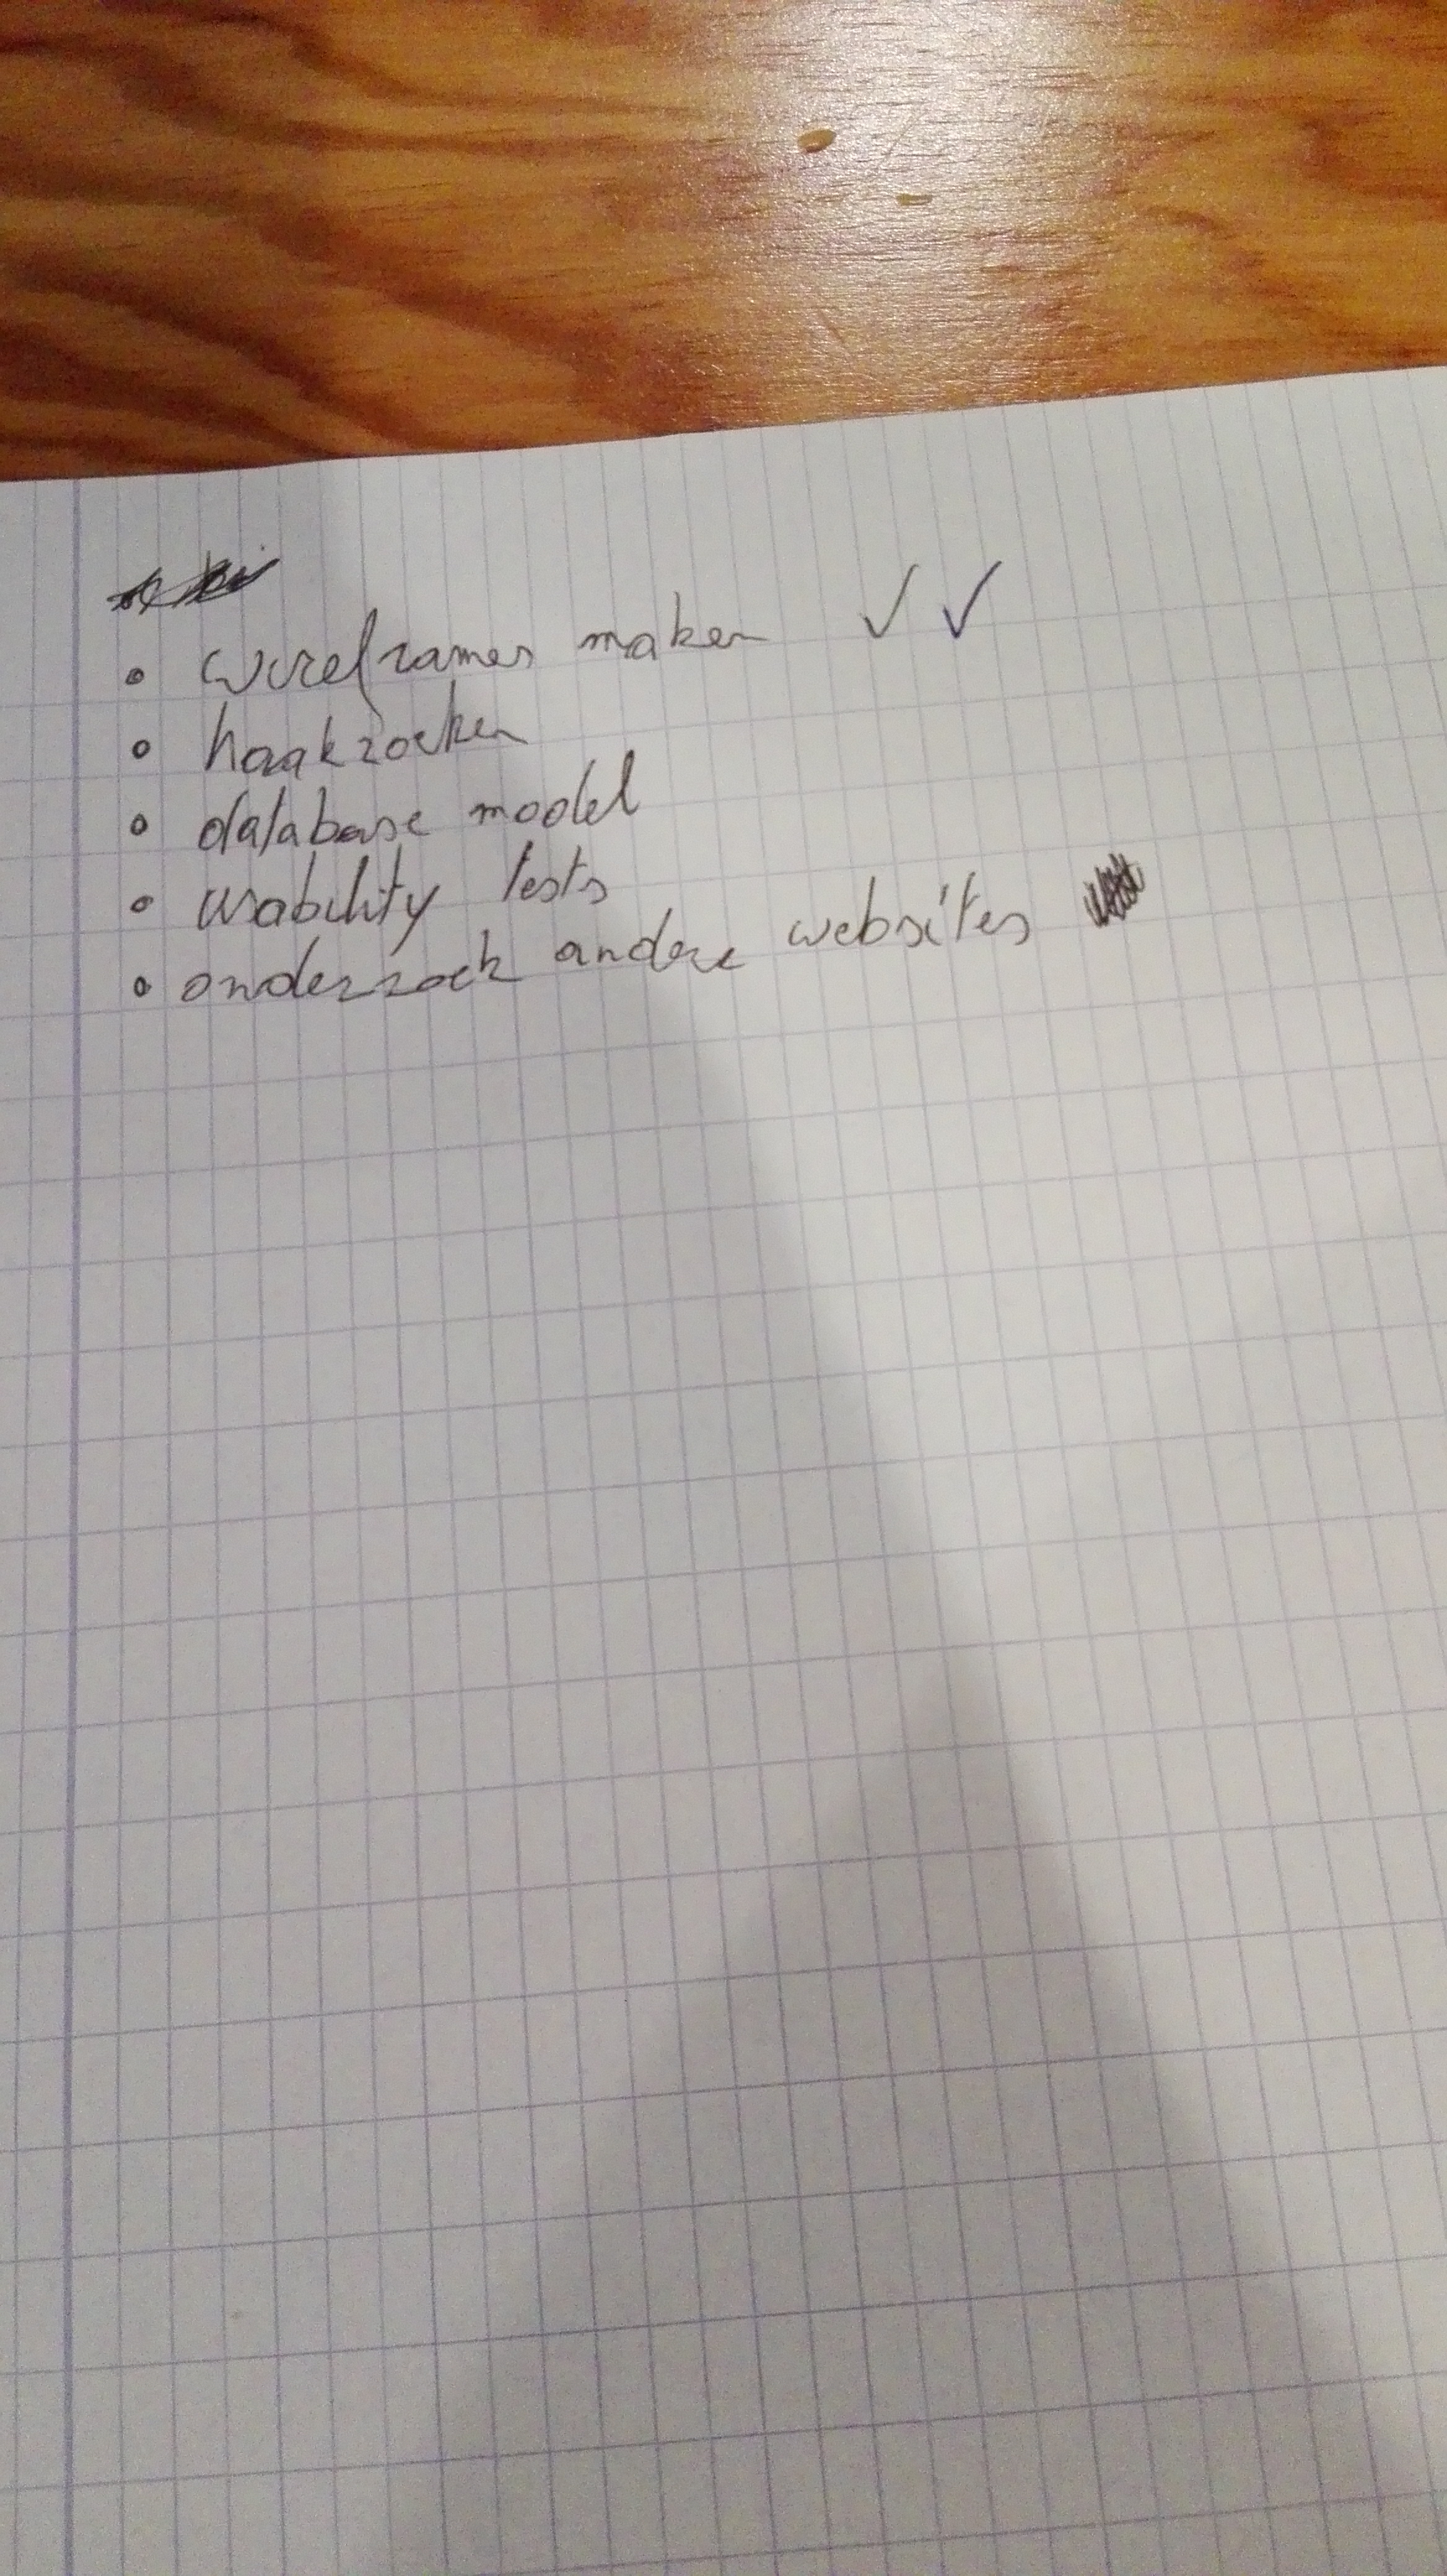 • wireframes maken ✓ ✓
• haakzoeken
• database model
• usability tests
• onderzoek andere websites